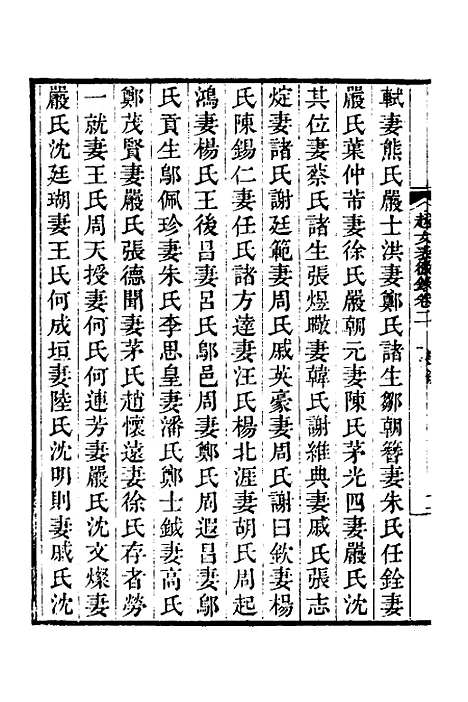 軾妻熊氏嚴士洪妻鄭氏諸生鄒朝簪妻朱氏任銓妻
嚴氏葉仲芾妻徐氏嚴朝元妻陳氏茅光四妻嚴氏沈
其位妻蔡氏諸生張煜瞰妻韓氏謝維典妻戚氏張志
妻諸氏謝廷範妻周氏戚英豪妻周氏謝曰欽妻楊
氏陳錫仁妻任氏諸方達妻汪氏楊北涯妻胡氏周起
鴻妻楊氏王後呂妻呂氏鄔邑周妻鄭氏周遐呂妻鄔
氏貢生鄔佩珍妻朱氏李思皇妻潘氏鄭士鉞妻高氏
鄭茂賢妻嚴氏張德聞妻茅氏趙懷遠妻徐氏存者勞
一就妻王氏周天授妻何氏何連芳妻嚴氏沈文燦妻
嚴氏沈廷瑚妻王氏何成垣妻陸氏沈明則妻戚氏沈
越女表微錄卷二